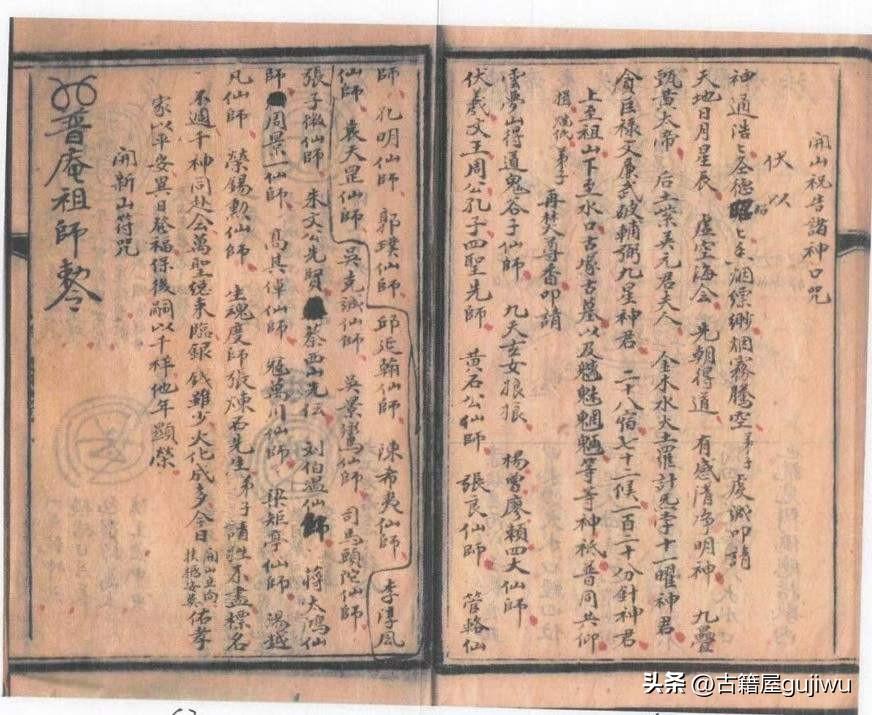 開山祝告諸神口咒
伏以
神通浩々圣德昭々香烟縹緲烟霧騰空弟子虔誠叩請
天地日月星辰 虛空海会 先朝得道 有感清净明神 九壘
甄黃大帝 后土紫英元君夫人 金木水火土羅計炁孛十一曜神君
貪巨祿文廉武破輔弼九星神君 二十八宿七十二候一百二十分針神君
上至祖山下至水口古塚古墓以及魑魅魍魎等等神祇普同共仰
弟子 再焚尋香叩請
雲夢山得道鬼谷子仙師 九天玄女娘娘 楊曾廖賴四大仙師
伏羲文王周公孔子四聖先師 黃石公仙師 張良仙師 管輅仙
師 孔明仙師 郭璞仙師 邱延翰仙師 陳希夷仙師 李淳風
仙師 袁天罡仙師 吳克誠仙師 吳景鸞仙師 司馬頭陀仙師
張子微仙師 朱文公先賢 蔡西山先 刘伯溫仙師 蔣大鴻仙
師 周景一仙師 高其倬仙師 萬川仙師 梁矩亭仙師 湯越
凡仙師 榮錫勲仙師 生魂度師張煉石先生弟子請牲不盡標名
不週千神同赴会萬聖總来臨銀錢雖少火化成多今日開山立向扶 佑孝
家以平安異日發福保後嗣以千祥他年顯榮
開新山符咒
普庵祖師勅
头条 @古籍屋gujiwu